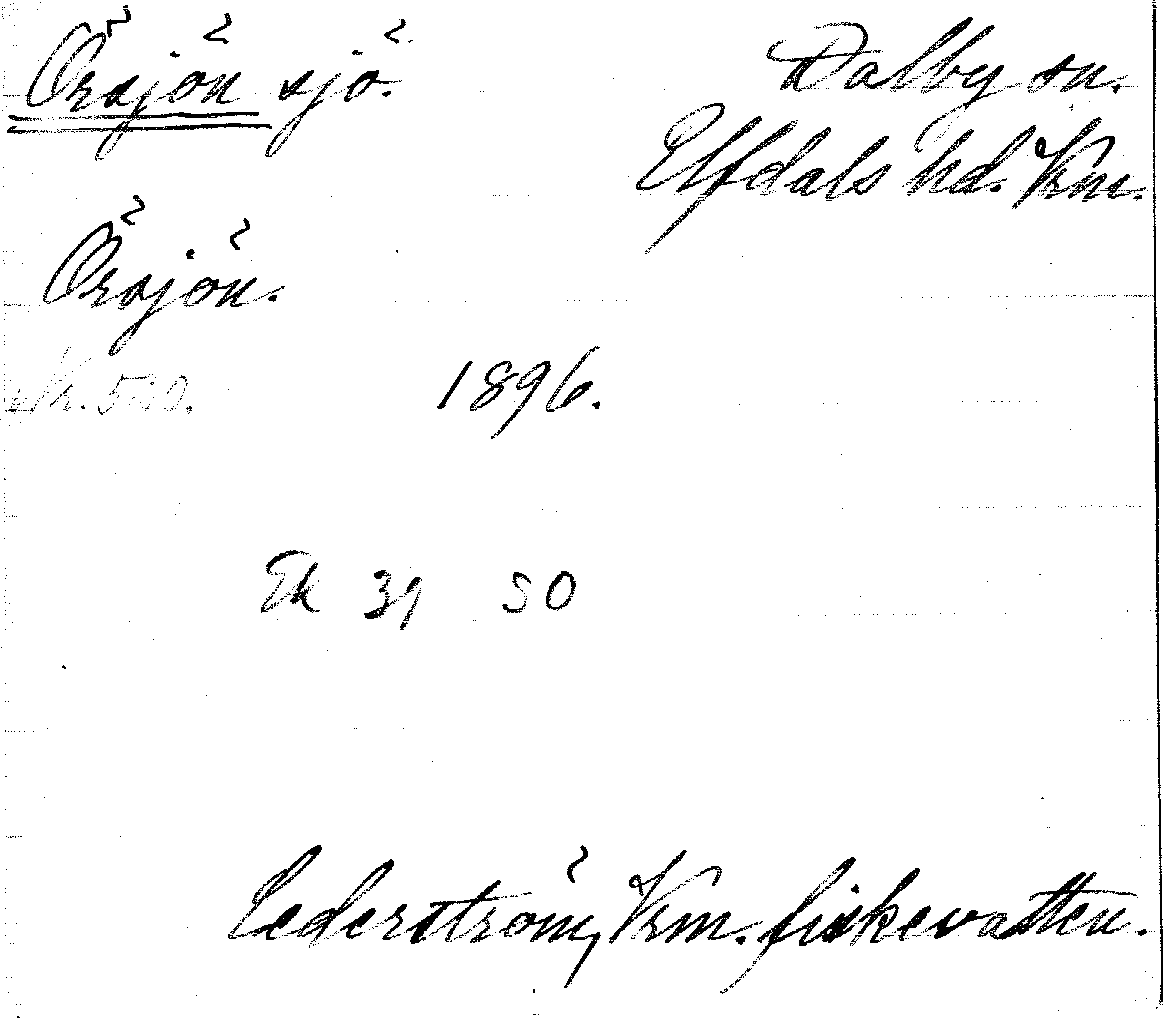 Örsjön sjö. Dalby sn.
Elfdals hd. Vrm.
Örsjön.
1896.
Ek 39 50
Cederström, Vrm. fiskevatten.